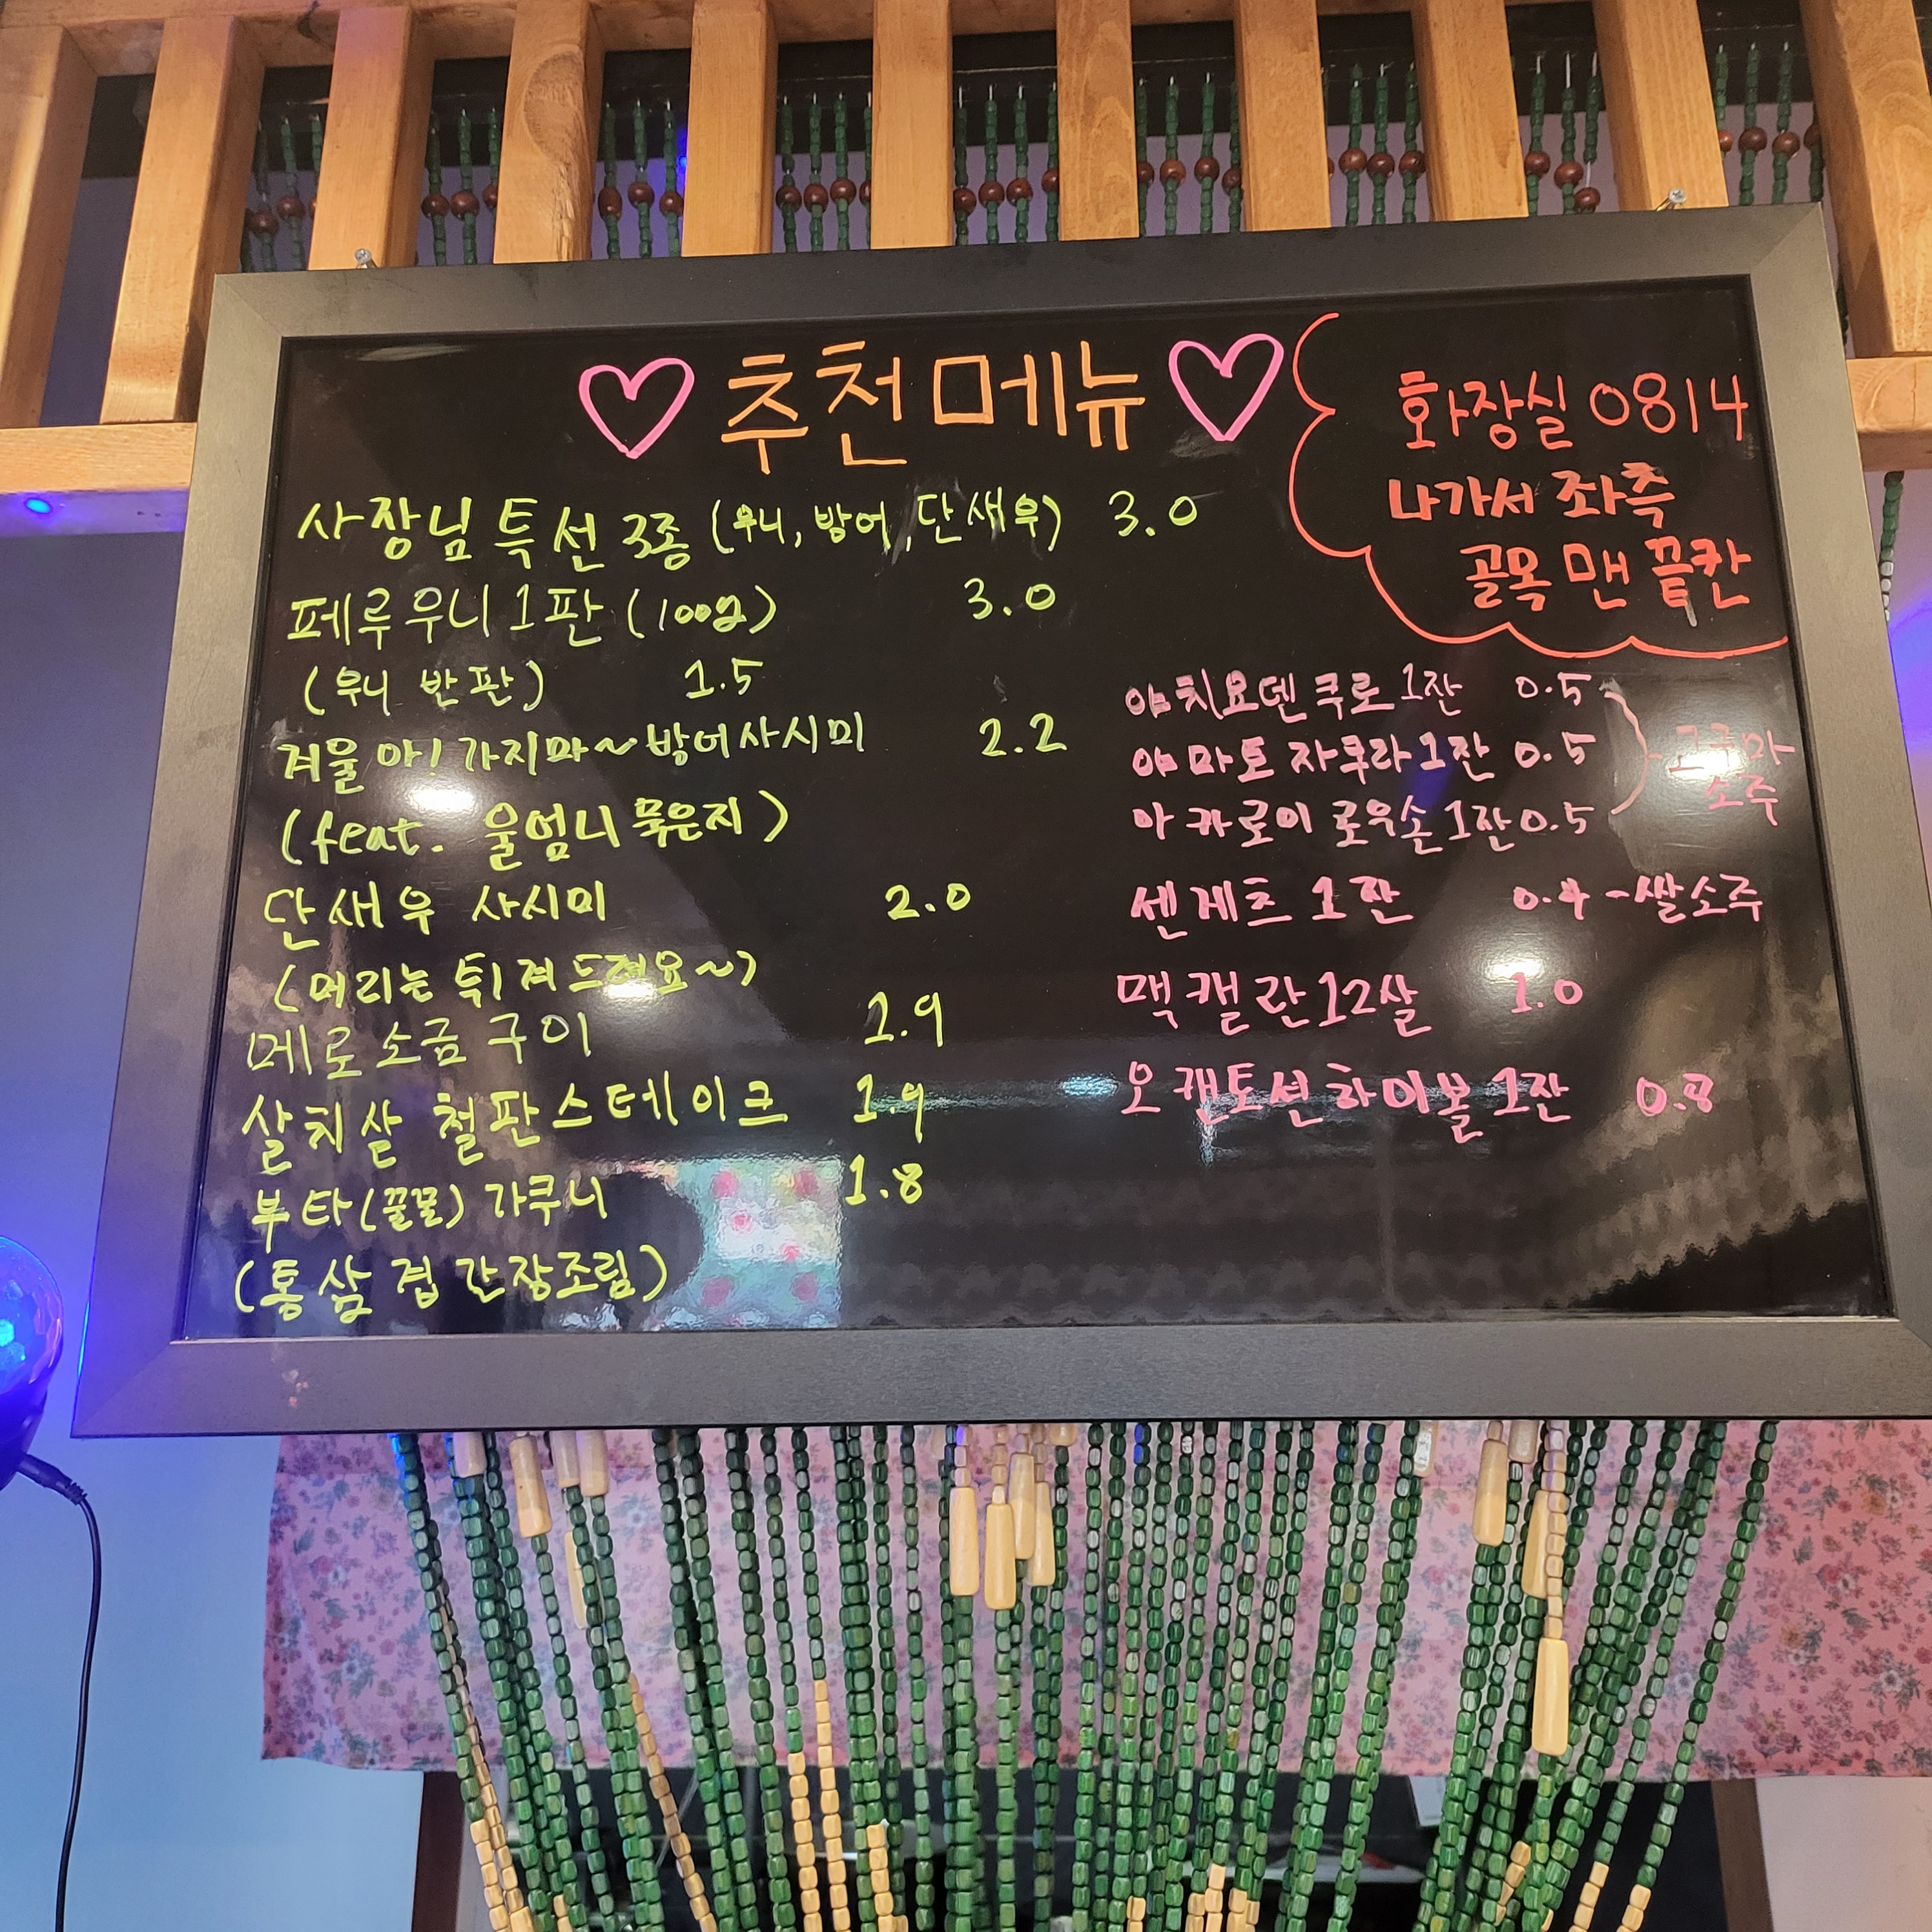 추천메뉴
사장님 특선 3종 (우니, 방어, 단새우) 3.0
페루 우니 1판 (100g) 3.0
(우니 반판) 1.5
겨울아! 가지마~ 방어사시미 2.2
(feat. 울엄니 묵은지)
단새우 사시미 2.0
(머리는 튀겨드려요~)
메로소금구이 1.9
살치살 철판스테이크 1.9
부타(꿀꿀) 가쿠니 1.8
(통삼겹 간장조림)
화장실 0814
나가서 좌측
골목 맨 끝칸
야치요덴 쿠로 1잔 0.5
야마토 자쿠라 1잔 0.5
아카로이 로우손 1잔 0.5
고구마
소주
센게츠 1잔 0.4 - 쌀소주
맥캘란 12살 1.0
오캔토션 하이볼 1잔 0.8